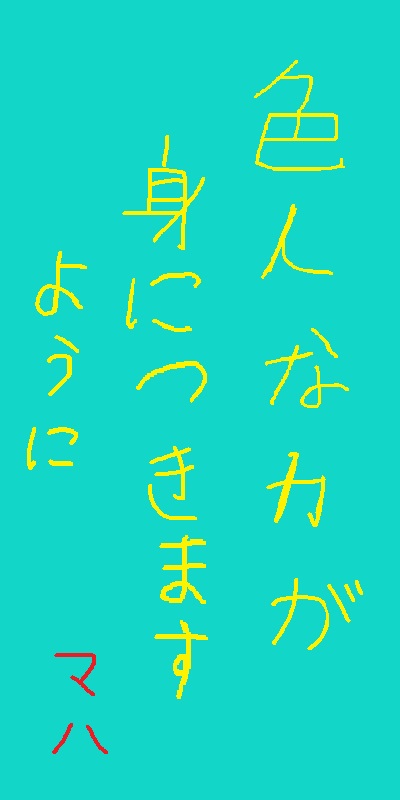 色んな力が
身につきます
ように
マハ